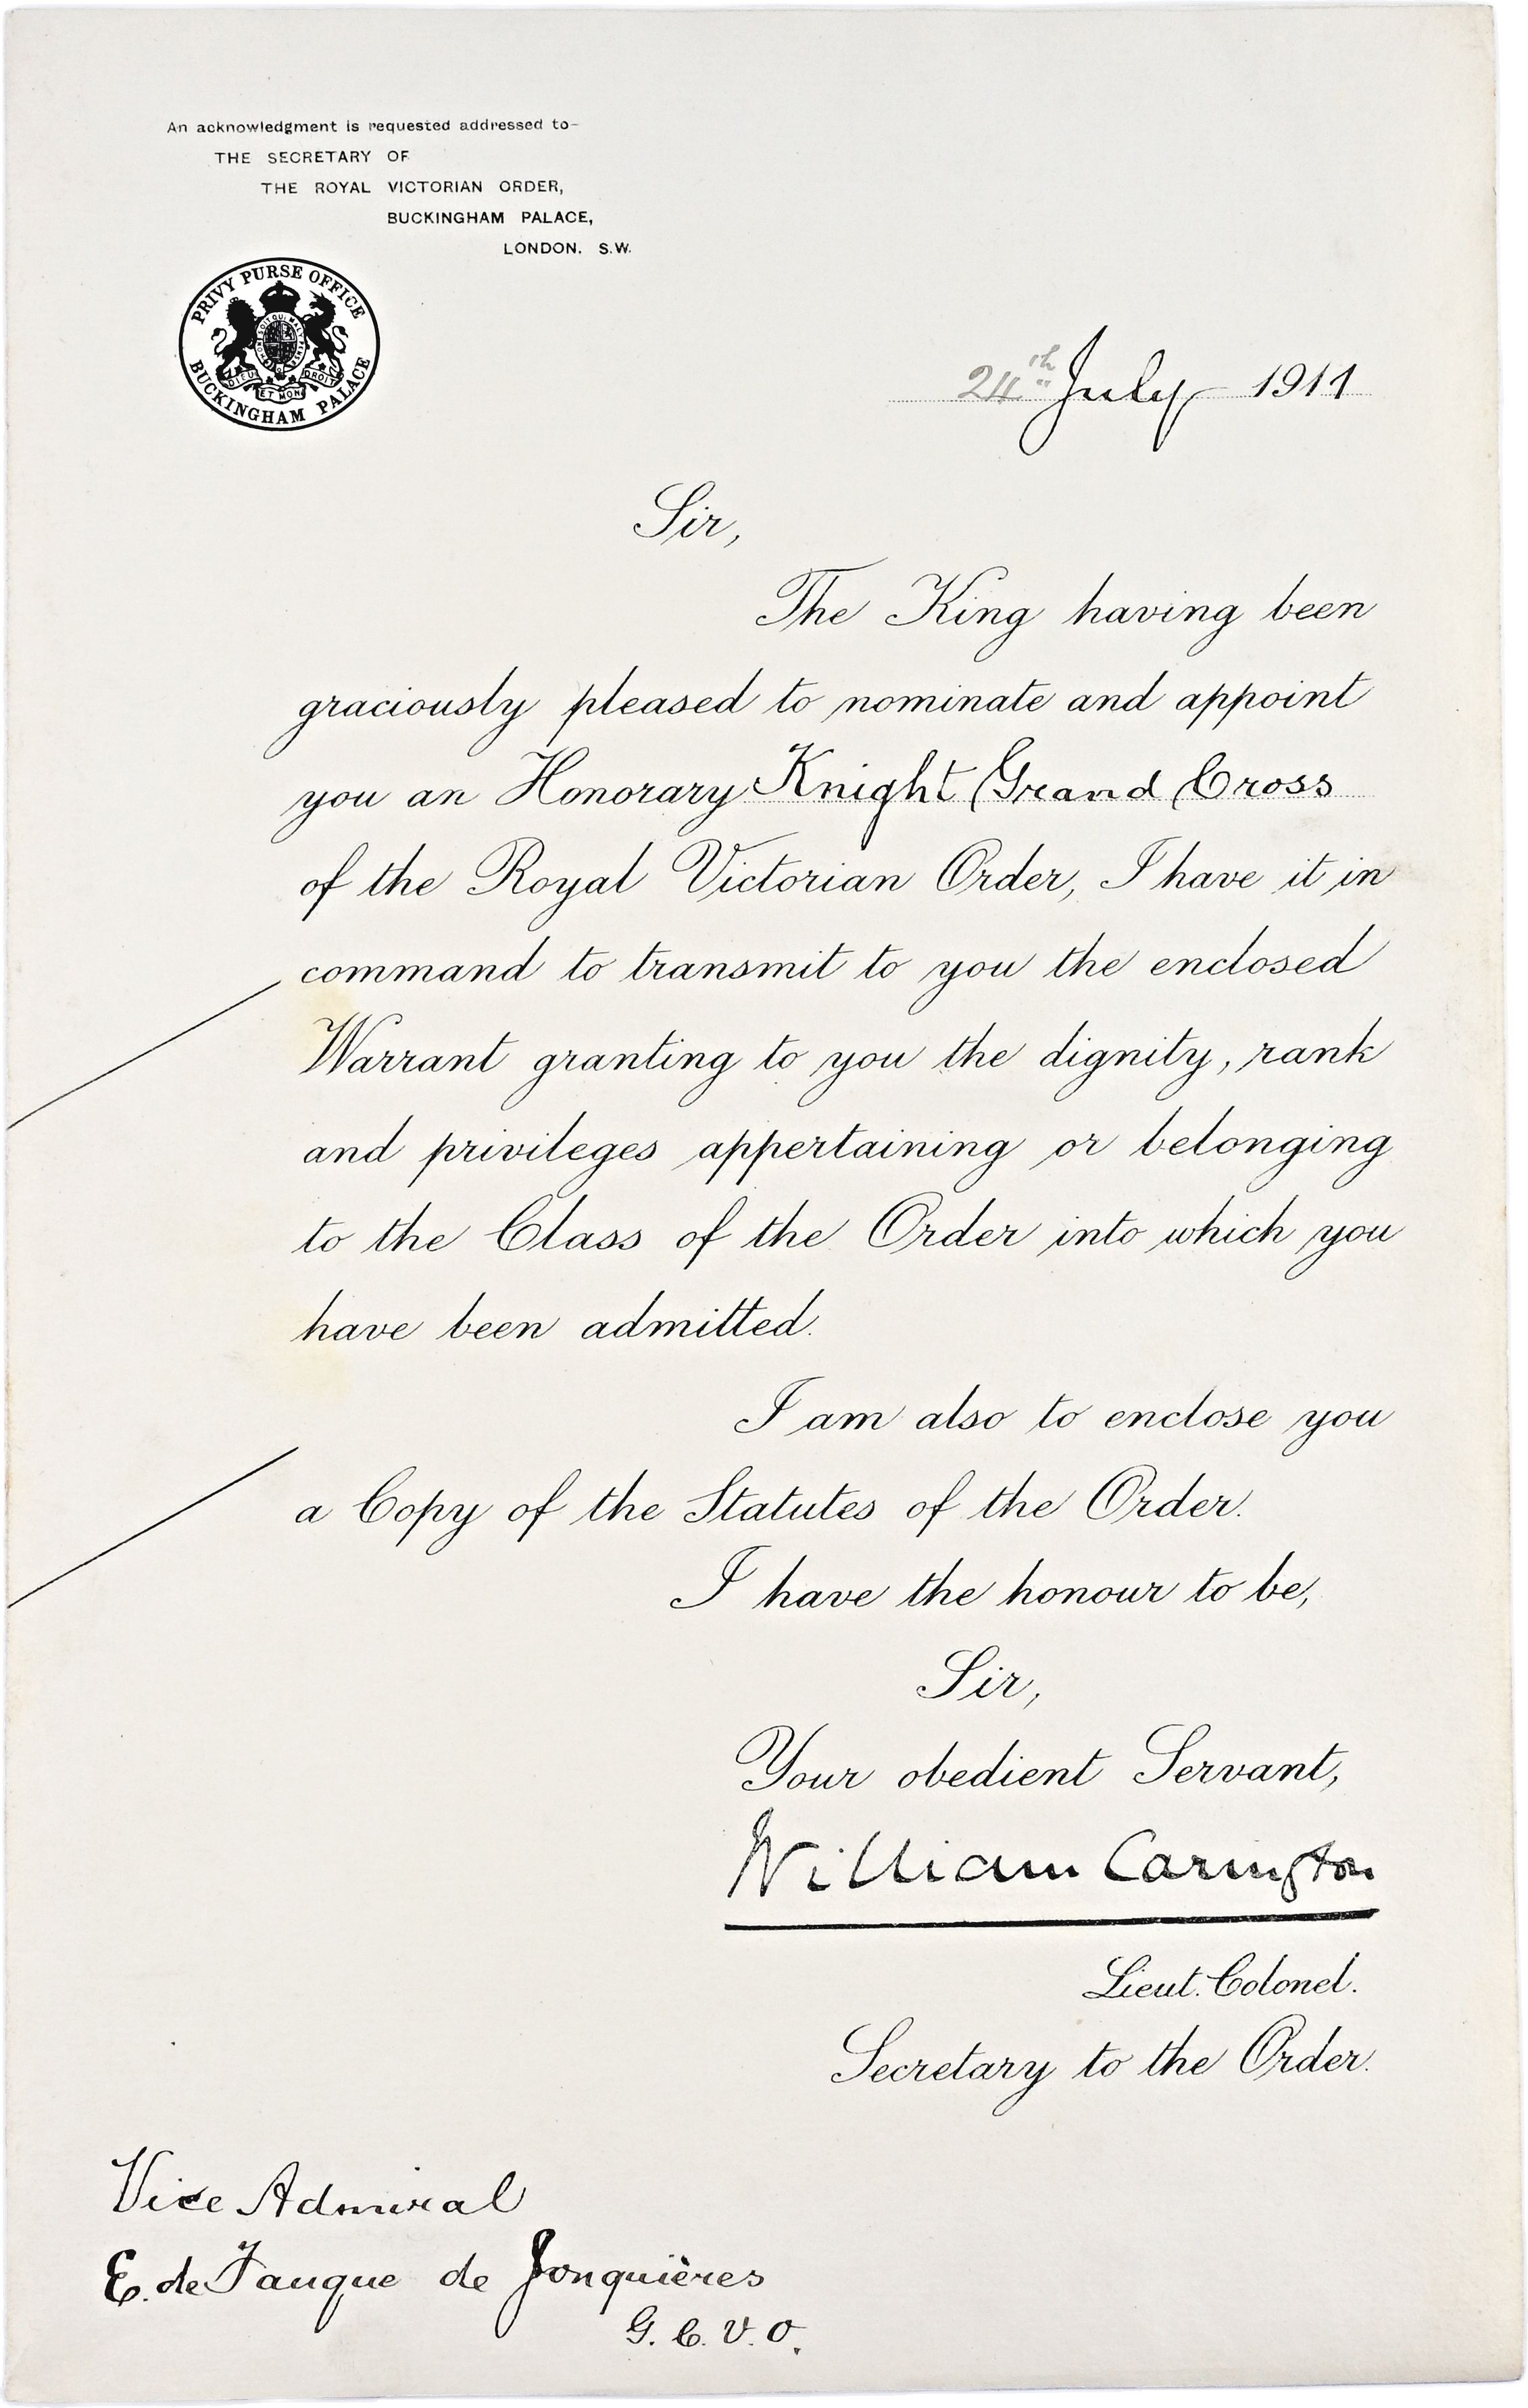 An acknowledgment is requested addressed to-
THE SECRETARY OF
THE ROYAL VICTORIAN ORDER,
BUCKINGHAM PALACE,
LONDON. S.W.
PRIVY PURSE OFFICE
HONI SOIT QUI MAL Y PENSE
DIEU ET MON DROIT
BUCKINGHAM PALACE
24th July 1911
Sir,
The King having been
graciously pleased to nominate and appoint
you an Honorary Knight Grand Cross
of the Royal Victorian Order, I have it in
command to transmit to you the enclosed
Warrant granting to you the dignity, rank
and privileges appertaining or belonging
to the Class of the Order into which you
have been admitted.
I am also to enclose you
a Copy of the Statutes of the Order.
I have the honour to be,
Sir,
Your obedient Servant,
William Carington
Lieut. Colonel.
Secretary to the Order.
Vice Admiral
E. de Fauque de Jonquières
G. C. V. O.